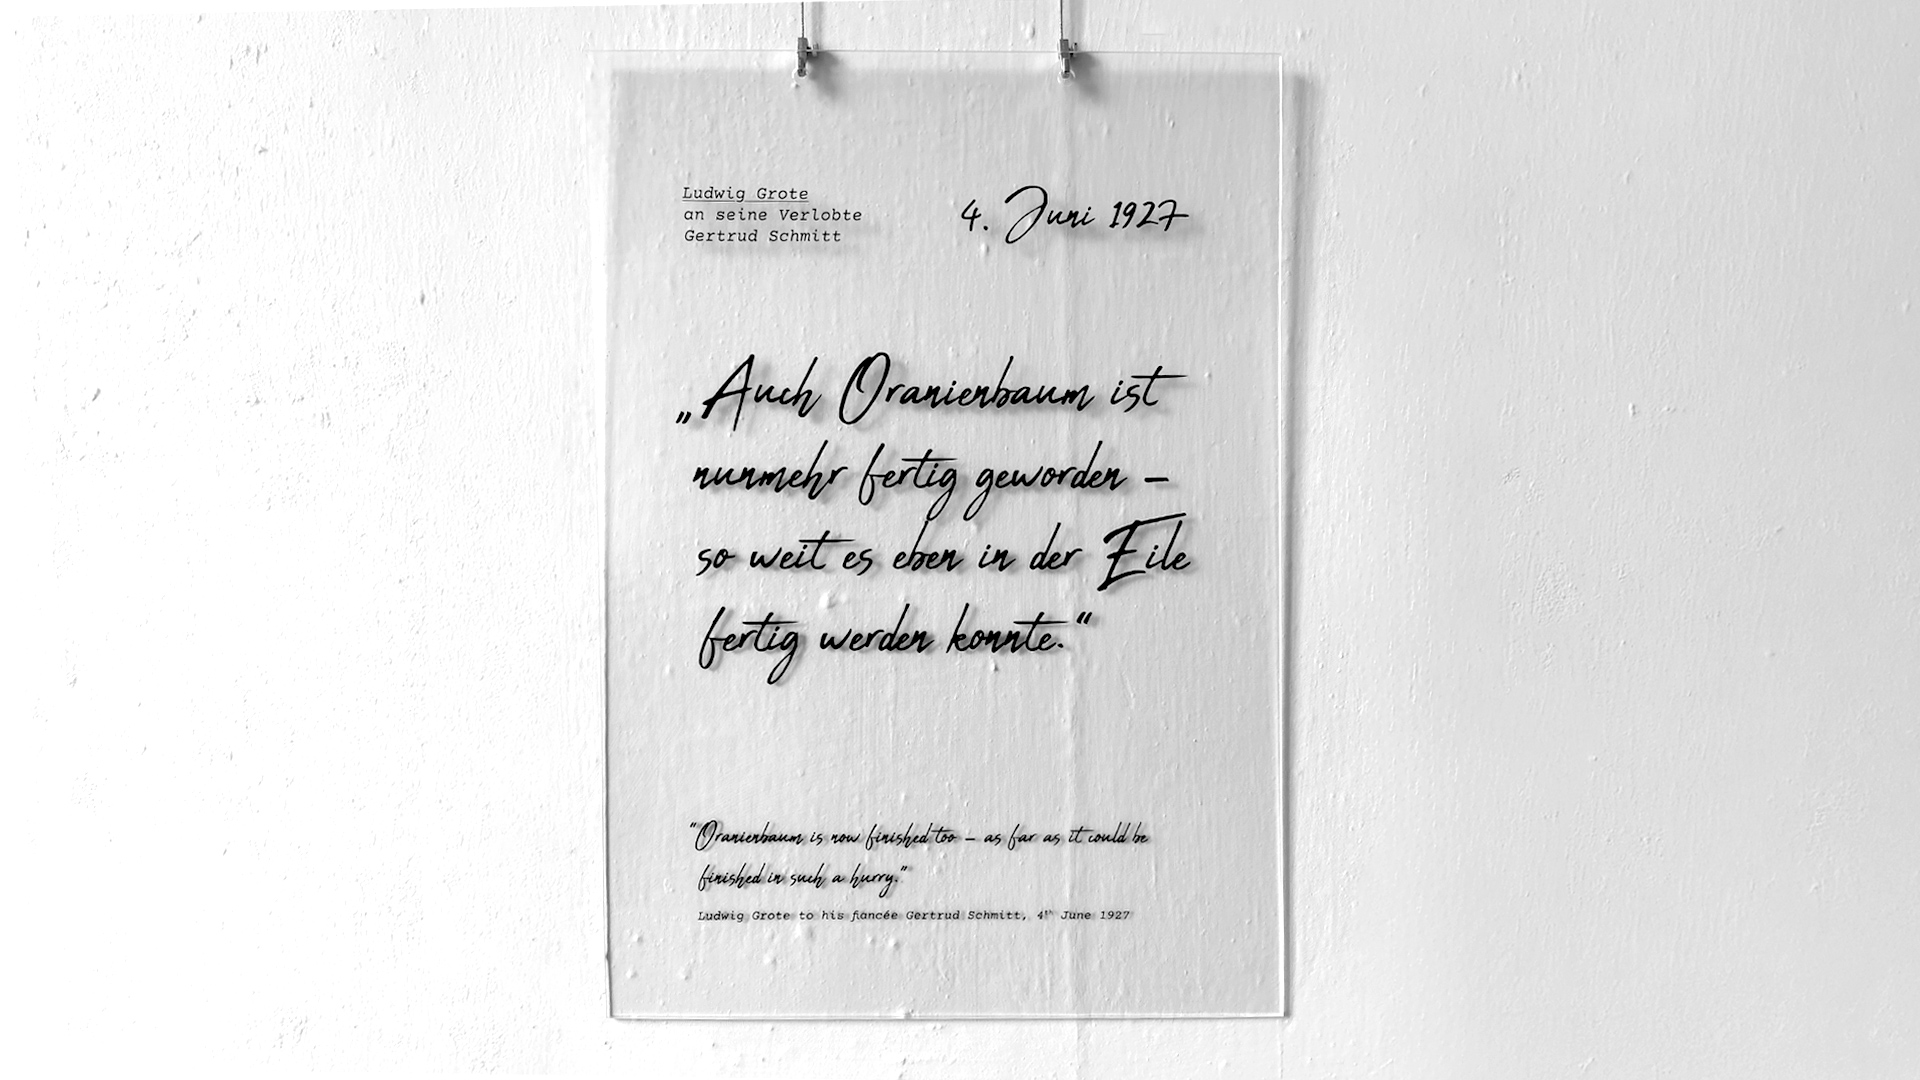 Ludwig Grote
an seine Verlobte
Gertrud Schmitt
4. Juni 1927
„Auch Oranienbaum ist
nunmehr fertig geworden –
so weit es eben in der Eile
fertig werden konnte.“
"Oranienbaum is now finished too – as far as it could be
finished in such a hurry."
Ludwig Grote to his fiancée Gertrud Schmitt, 4th June 1927